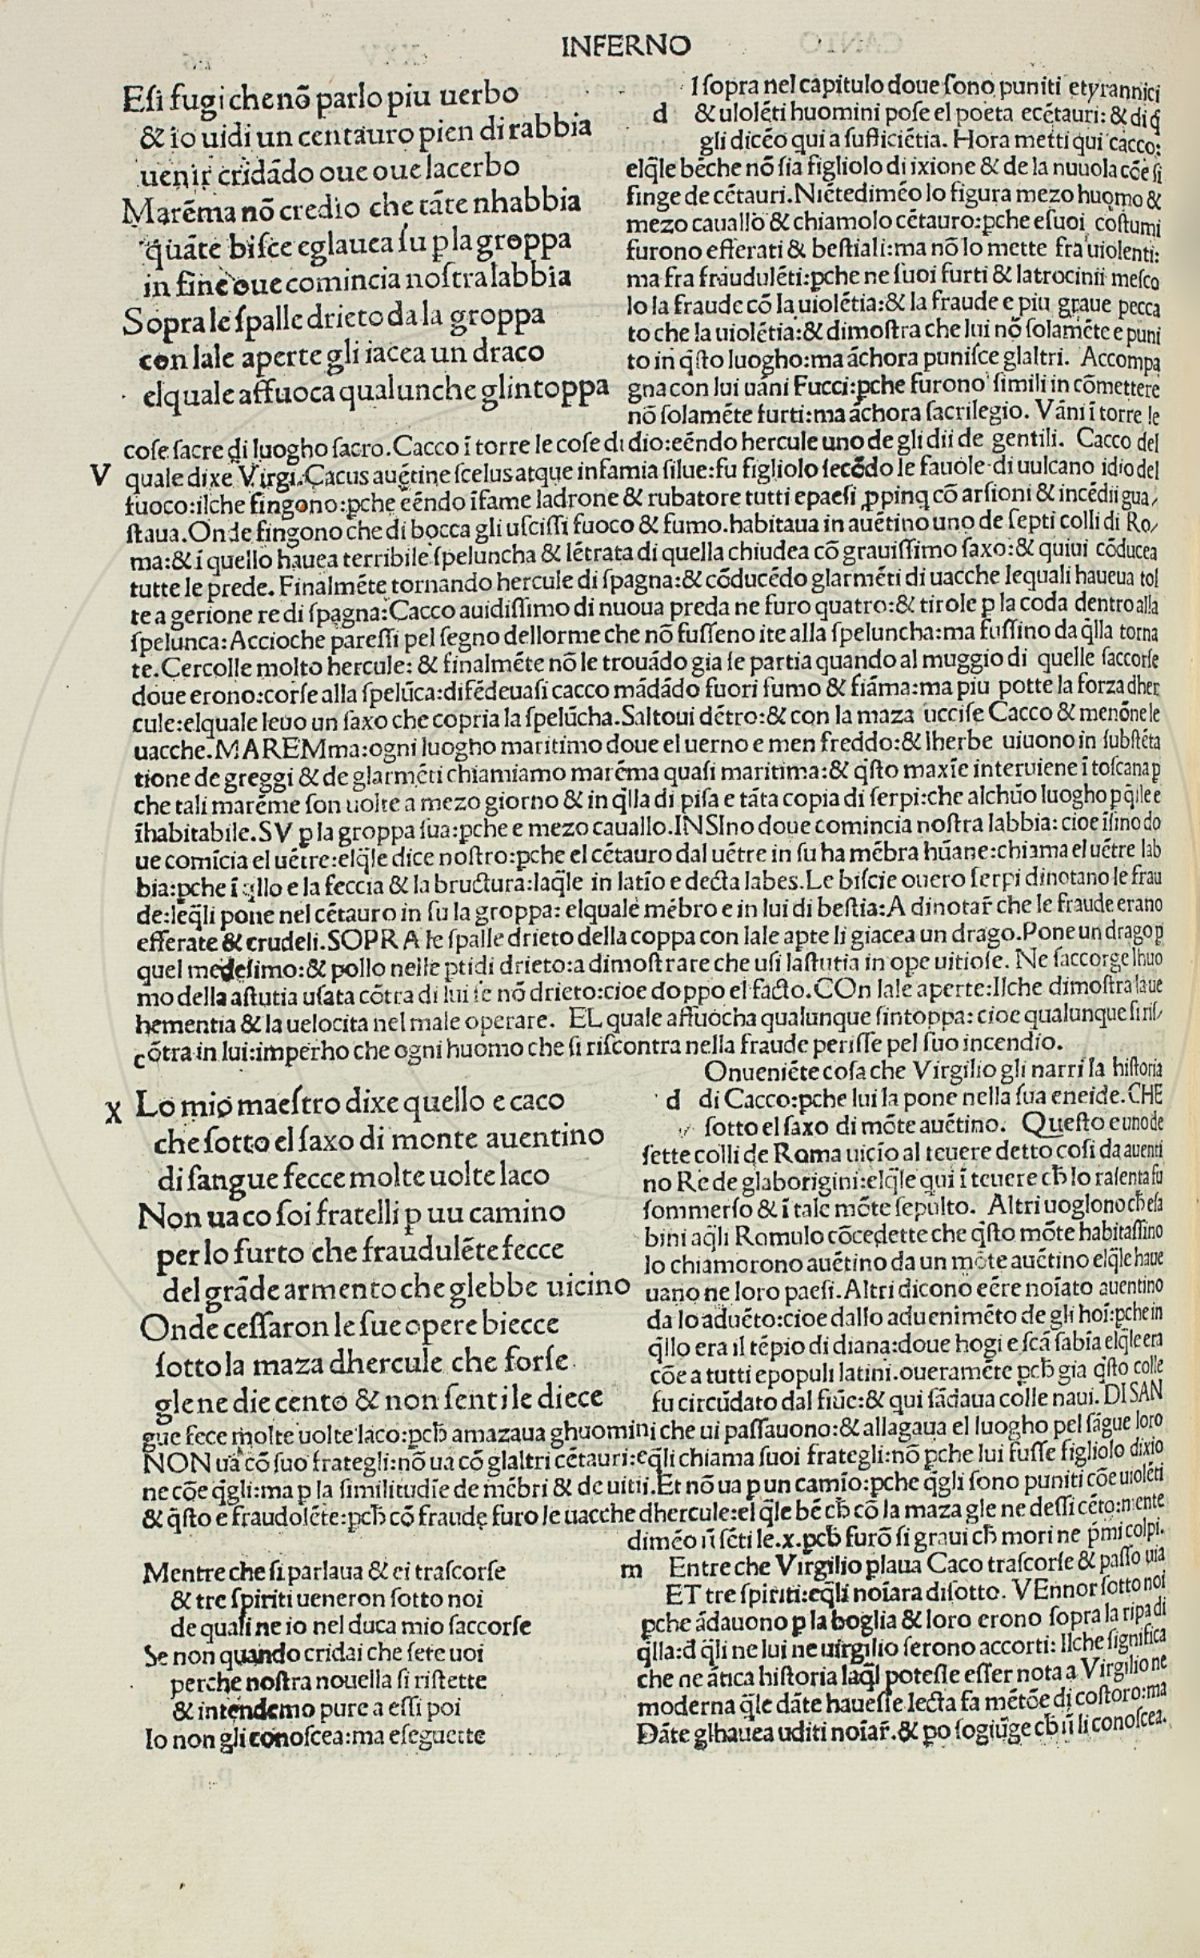 INFERNO
Eſi fugi che nõ parlo piu uerbo
& io uidi un centauro pien di rabbia
uenir cridãdo oue oue lacerbo
Marẽma nõ credio che tãte nhabbia
quãte biſce eglauea ſu ꝑ la groppa
in fin oue comincia noſtra labbia
Sopra le ſpalle drieto da la groppa
con lale aperte gli iacea un draco
elquale affuoca qualunche glintoppa
d
I ſopra nel capitulo doue ſono puniti etyrannici
& uiolẽti huomini poſe el poeta ecẽtauri: & di q̃
gli dicẽo qui a ſufficiẽtia. Hora metti qui cacco:
elq̃le bẽche nõ ſia figliolo di ixione & de la nuuola cõe ſi
finge de cẽtauri. Niẽtedimẽo lo figura mezo huomo &
mezo cauallo & chiamolo cẽtauro: ꝑche eſuoi coſtumi
furono efferati & beſtiali: ma nõ lo mette fra uiolenti:
ma fra fraudulẽti: ꝑche ne ſuoi furti & latrocinii meſco
lo la fraude cõ la uiolẽtia: & la fraude e piu graue pecca
to che la uiolẽtia: & dimoſtra che lui nõ ſolamẽte e puni
to in q̃ſto luogho: ma ãchora puniſce glaltri. Accompa
gna con lui uãni Fucci: ꝑche furono ſimili in cõmettere
nõ ſolamẽte furti: ma ãchora ſacrilegio. Vãni ĩ torre le
coſe ſacre di luogho ſacro. Cacco ĩ torre le coſe di dio: eẽndo hercule uno de gli dii de gentili. Cacco del
V quale dixe Virgi. Cacus auẽtine ſcelus atque infamia ſilue: fu figliolo ſecõdo le fauole di uulcano idio del
fuoco: ilche fingono: ꝑche eẽndo ĩfame ladrone & rubatore tutti epaeſi ꝓpinq cõ arſioni & incẽdii gua/
ſtaua. Onde fingono che di bocca gli uſciſſi fuoco & fumo. habitaua in auẽtino uno de ſepti colli di Ro/
ma: & ĩ quello hauea terribile ſpeluncha & lẽtrata di quella chiudea cõ grauiſſimo ſaxo: & quiui cõducea
tutte le prede. Finalmẽte tornando hercule di ſpagna: & cõducẽdo glarmẽti di uacche lequali haueua tol
te a gerione re di ſpagna: Cacco auidiſſimo di nuoua preda ne furo quatro: & tirole ꝑ la coda dentro alla
ſpelunca: Accioche pareſſi pel ſegno dellorme che nõ fuſſeno ite alla ſpeluncha: ma fuſſino da q̃lla torna
te. Cercolle molto hercule: & finalmẽte nõ le trouãdo gia ſe partia quando al muggio di quelle ſaccorſe
doue erono: corſe alla ſpelũca: difẽdeuaſi cacco mãdãdo fuori fumo & fiãma: ma piu potte la forza dher
cule: elquale leuo un ſaxo che copria la ſpelũcha. Saltoui dẽtro: & con la maza ucciſe Cacco & menõne le
uacche. MAREMma: ogni luogho maritimo doue el uerno e men freddo: & lherbe uiuono in ſubſtẽta
tione de greggi & de glarmẽti chiamiamo marẽma quaſi maritima: & q̃ſto maxĩe interuiene ĩ toſcana ꝑ
che tali marẽme ſon uolte a mezo giorno & in q̃lla di piſa e tãta copia di ſerpi: che alchũo luogho ꝑ q̃lle e
ĩhabitabile. SV ꝑ la groppa ſua: ꝑche e mezo cauallo. INSIno doue comincia noſtra labbia: cioe iſino do
ue comĩcia el uẽtre: elq̃le dice noſtro: ꝑche el cẽtauro dal uẽtre in ſu ha mẽbra hũane: chiama el uẽtre lab
bia: ꝑche ĩ q̃llo e la feccia & la bructura: laq̃le in latĩo e decta labes. Le biſcie ouero ſerpi dinotano le frau
de: leq̃li pone nel cẽtauro in ſu la groppa: elquale mẽbro e in lui di beſtia: A dinotar̃ che le fraude erano
efferate & crudeli. SOPRA le ſpalle drieto della coppa con lale apte li giacea un drago. Pone un drago ꝑ
quel medeſimo: & pollo nelle ꝑtidi drieto: a dimoſtrare che uſi laſtutia in ope uitioſe. Ne ſaccorge lhuo
mo della aſtutia uſata cõtra di lui ſe nõ drieto: cioe doppo el facto. COn lale aperte: Ilche dimoſtra la ue
hementia & la uelocita nel male operare. EL quale affuocha qualunque ſintoppa: cioe qualunque ſi riſ/
cõtra in lui: imperho che ogni huomo che ſi riſcontra nella fraude periſſe pel ſuo incendio.
X Lo mio maeſtro dixe quello e caco
che ſotto el ſaxo di monte auentino
di ſangue fecce molte uolte laco
Non ua co ſoi fratelli ꝑ uu camino
per lo furto che fraudulẽte fecce
del grãde armento che glebbe uicino
Onde ceſſaron le ſue opere biecce
ſotto la maza dhercule che forſe
glene die cento & non ſenti le diece
d
Onueniẽte coſa che Virgilio gli narri la hiſtoria
di Cacco: ꝑche lui la pone nella ſua eneide. CHE
ſotto el ſaxo di mõte auẽtino. Queſto e uno de
ſette colli de Roma uicĩo al teuere detto coſi da auenti
no Re de glaborigini: elq̃le qui ĩ teuere cħ lo raſenta fu
ſommerſo & ĩ tale mõte ſepulto. Altri uoglono cħ eſa
bini aq̃li Romulo cõcedette che q̃ſto mõte habitaſſino
lo chiamorono auẽtino da un mõte auẽtino elq̃le haue
uano ne loro paeſi. Altri dicono eẽre noĩato auentino
da lo aduẽto: cioe dallo aduenimẽto de gli hoĩ: ꝑche in
q̃llo era il tẽpio di diana: doue hogi e ſcã ſabĩa elq̃le era
cõe a tutti epopuli latini. oueramẽte ꝑcħ gia q̃ſto colle
fu circũdato dal fiũe: & qui ſãdaua colle naui. DI SAN
gue fece molte uolte laco: ꝑcħ amazaua ghuomini che ui paſſauono: & allagaua el luogho pel ſãgue loro
NON ua cõ ſuo frategli: nõ ua cõ glaltri cẽtauri: eq̃li chiama ſuoi frategli: nõ ꝑche lui fuſſe figliolo dixio
ne cõe q̃gli: ma ꝑ la ſimilitudĩe de mẽbri & de uitii. Et nõ ua ꝑ un camĩo: ꝑche q̃gli ſono puniti cõe uiolẽti
& q̃ſto e fraudolẽte: ꝑcħ cõ fraude furo le uacche dhercule: el q̃le bẽ cħ cõ la maza gle ne deſſi cẽto: niente
dimẽo ñ ſẽti le .x. ꝑcħ furõ ſi graui cħ mori ne p̃mi colpi.
Mentre che ſi parlaua & ei traſcorſe
& tre ſpiriti ueneron ſotto noi
de quali ne io nel duca mio ſaccorſe
Se non quando cridai che ſete uoi
perche noſtra nouella ſi riſtette
& intendemo pure a eſſi poi
Io non gli conoſcea: ma eſeguette
m
Entre che Virgilio ꝑlaua Caco traſcorſe & paſſo uia
ET tre ſpiriti: eq̃li noĩara diſotto. VEnnor ſotto noi
ꝑche ãdauono ꝑ la boglia & loro erono ſopra la ripa di
q̃lla: đ q̃li ne lui ne uirgilio ſerono accorti: Ilche ſignifica
che ne ãtica hiſtoria laq̃l poteſſe eſſer nota a Virgilio ne
moderna q̃le dãte haueſſe lecta fa mẽtõe di coſtoro: ma
Dãte glhauea uditi noĩar̃. & po ſogiũge cħ ñ li conoſcea.